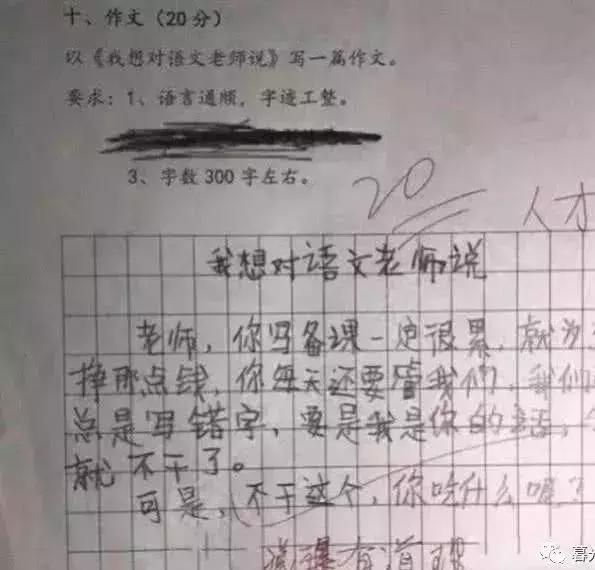 十、作文(20分)
以《我想对语文老师说》写一篇作文。
要求：1、语言通顺，字迹工整。
3、字数300字左右。
20
人才
我想对语文老师说
老师，你写备课一定很累，就为
挣那点钱，你每天还要管我们，我们
总是写错字，要是我是你的话，
就不干了。
可是，不干这个，你吃什么呢？
有道理
暮